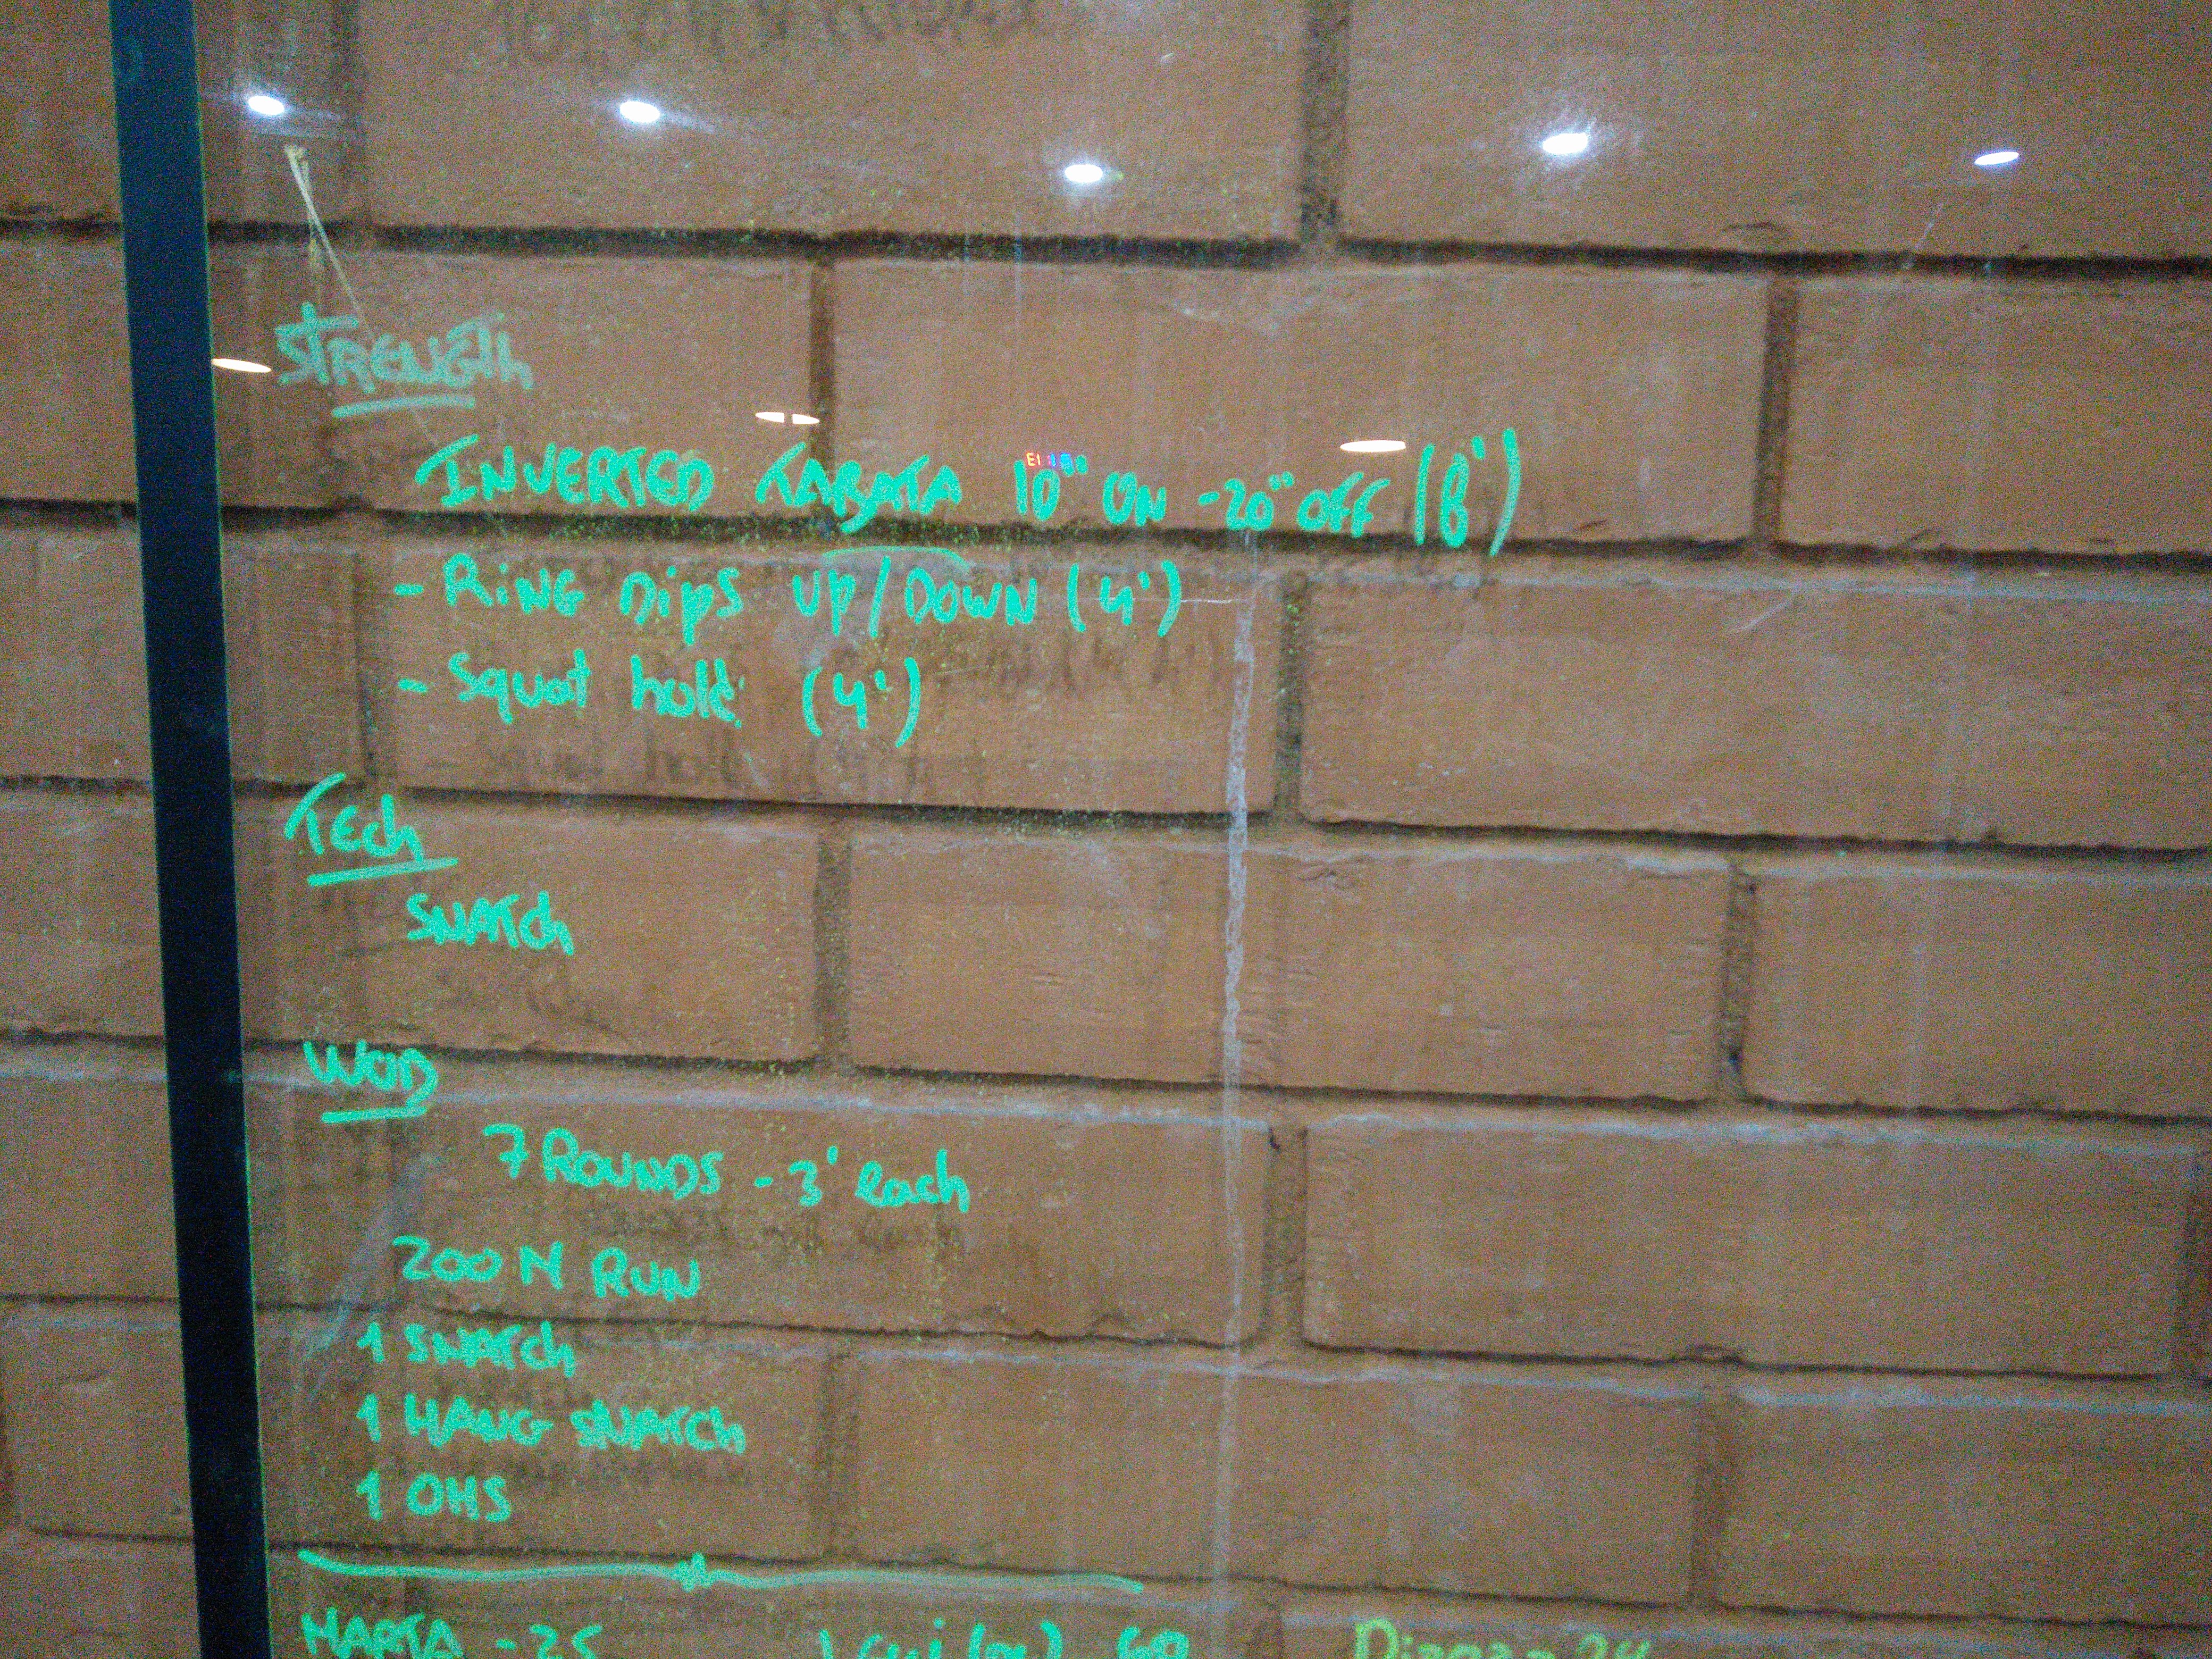 STRENGTH
INVERTED TABATA 10" ON -20" OFF (8')
- RING DIPS UP/DOWN (4')
- Squat hold (4')
TEch
SNATCh
WOD
7 ROUNDS - 3' each
200 M RUN
1 SNATCh
1 HANG SNATCh
1 OHS
MARTA - 25